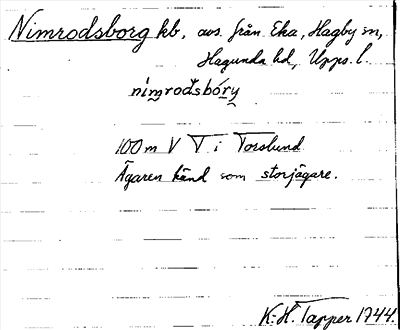 Nimrodsborg hb, avs. från Eka, Hagby sn,
Hagunda hd, Upps. l.
nimrodsbóry
100 m V T i Torslund
Ägaren känd som storjägare.
K.-H. Tapper 1944.